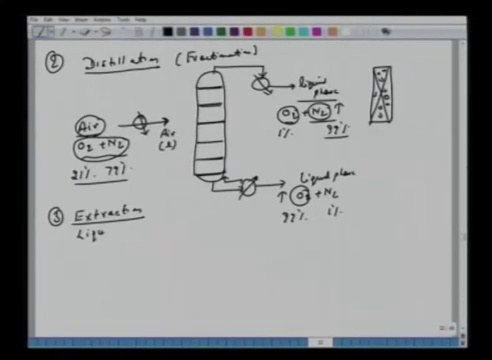 ② Distillation (Fractionation)
Air
O2 + N2
21% 79%
Air
(l)
liquid
phase
O2 + N2 ↑
1% 99%
Liquid phase
↑ O2 + N2
99% 1%
③ Extraction
Liqu